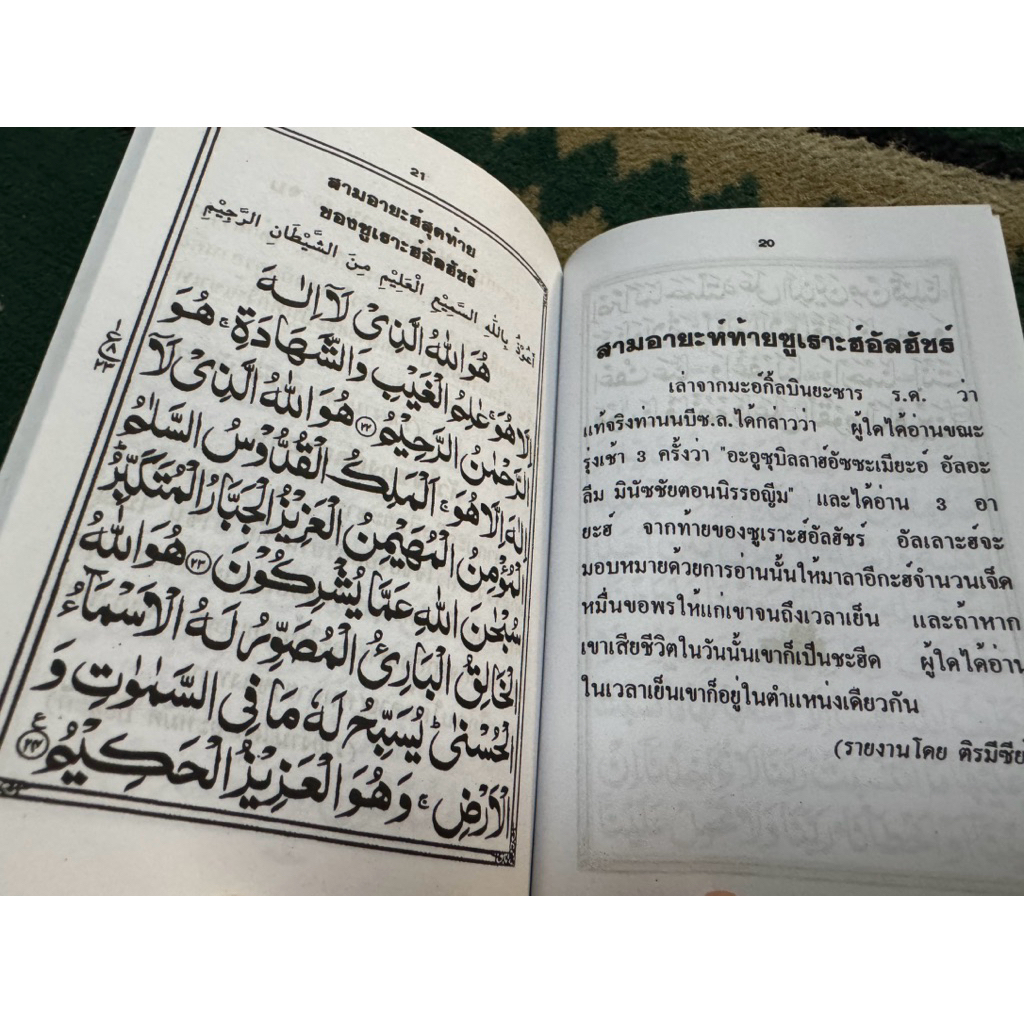 20
สามอายะห์ท้ายซูเราะฮ์อัลฮัชร์
เล่าจากมะอ์กิ้ลบินยะซาร ร.ด. ว่า
แท้จริงท่านนบีซ.ล.ได้กล่าวว่า ผู้ใดได้อ่านขณะ
รุ่งเช้า 3 ครั้งว่า "อะอูซุบิลลาฮอัซซะเมียะอ์ อัลอะ
ลีม มินัชชัยตอนนิรรอญีม" และได้อ่าน 3 อา
ยะฮ์ จากท้ายของซูเราะฮ์อัลฮัชร์ อัลเลาะฮ์จะ
มอบหมายด้วยการอ่านนั้นให้มาลาอีกะฮ์จำนวนเจ็ด
หมื่นขอพรให้แก่เขาจนถึงเวลาเย็น และถ้าหาก
เขาเสียชีวิตในวันนั้นเขาก็เป็นชะฮีด ผู้ใดได้อ่าน
ในเวลาเย็นเขาก็อยู่ในตำแหน่งเดียวกัน
(รายงานโดย ติรมีซีย์
21
สามอายะฮ์สุดท้าย
ของซูเราะฮ์อัลฮัชร์
أَعُوْذُ بِاللهِ السَّمِيْعِ الْعَلِيْمِ مِنَ الشَّيْطَانِ الرَّجِيْمِ
هُوَ اللهُ الَّذِىْ لَآ اِلٰهَ
اِلَّا هُوَ ۚ عٰلِمُ الْغَيْبِ وَالشَّهَادَةِ ۚ هُوَ
الرَّحْمٰنُ الرَّحِيْمُ ﴿٢٢﴾ هُوَ اللهُ الَّذِىْ لَآ
اِلٰهَ اِلَّا هُوَ ۚ اَلْمَلِكُ الْقُدُّوْسُ السَّلٰمُ
الْمُؤْمِنُ الْمُهَيْمِنُ الْعَزِيْزُ الْجَبَّارُ الْمُتَكَبِّرُ ؕ
سُبْحٰنَ اللهِ عَمَّا يُشْرِكُوْنَ ﴿٢٣﴾ هُوَ اللهُ
الْخَالِقُ الْبَارِئُ الْمُصَوِّرُ لَهُ الْاَسْمَآءُ
الْحُسْنٰى ؕ يُسَبِّحُ لَهٗ مَا فِى السَّمٰوٰتِ وَ
الْاَرْضِ ۚ وَهُوَ الْعَزِيْزُ الْحَكِيْمُ ﴿٢٤﴾ ع